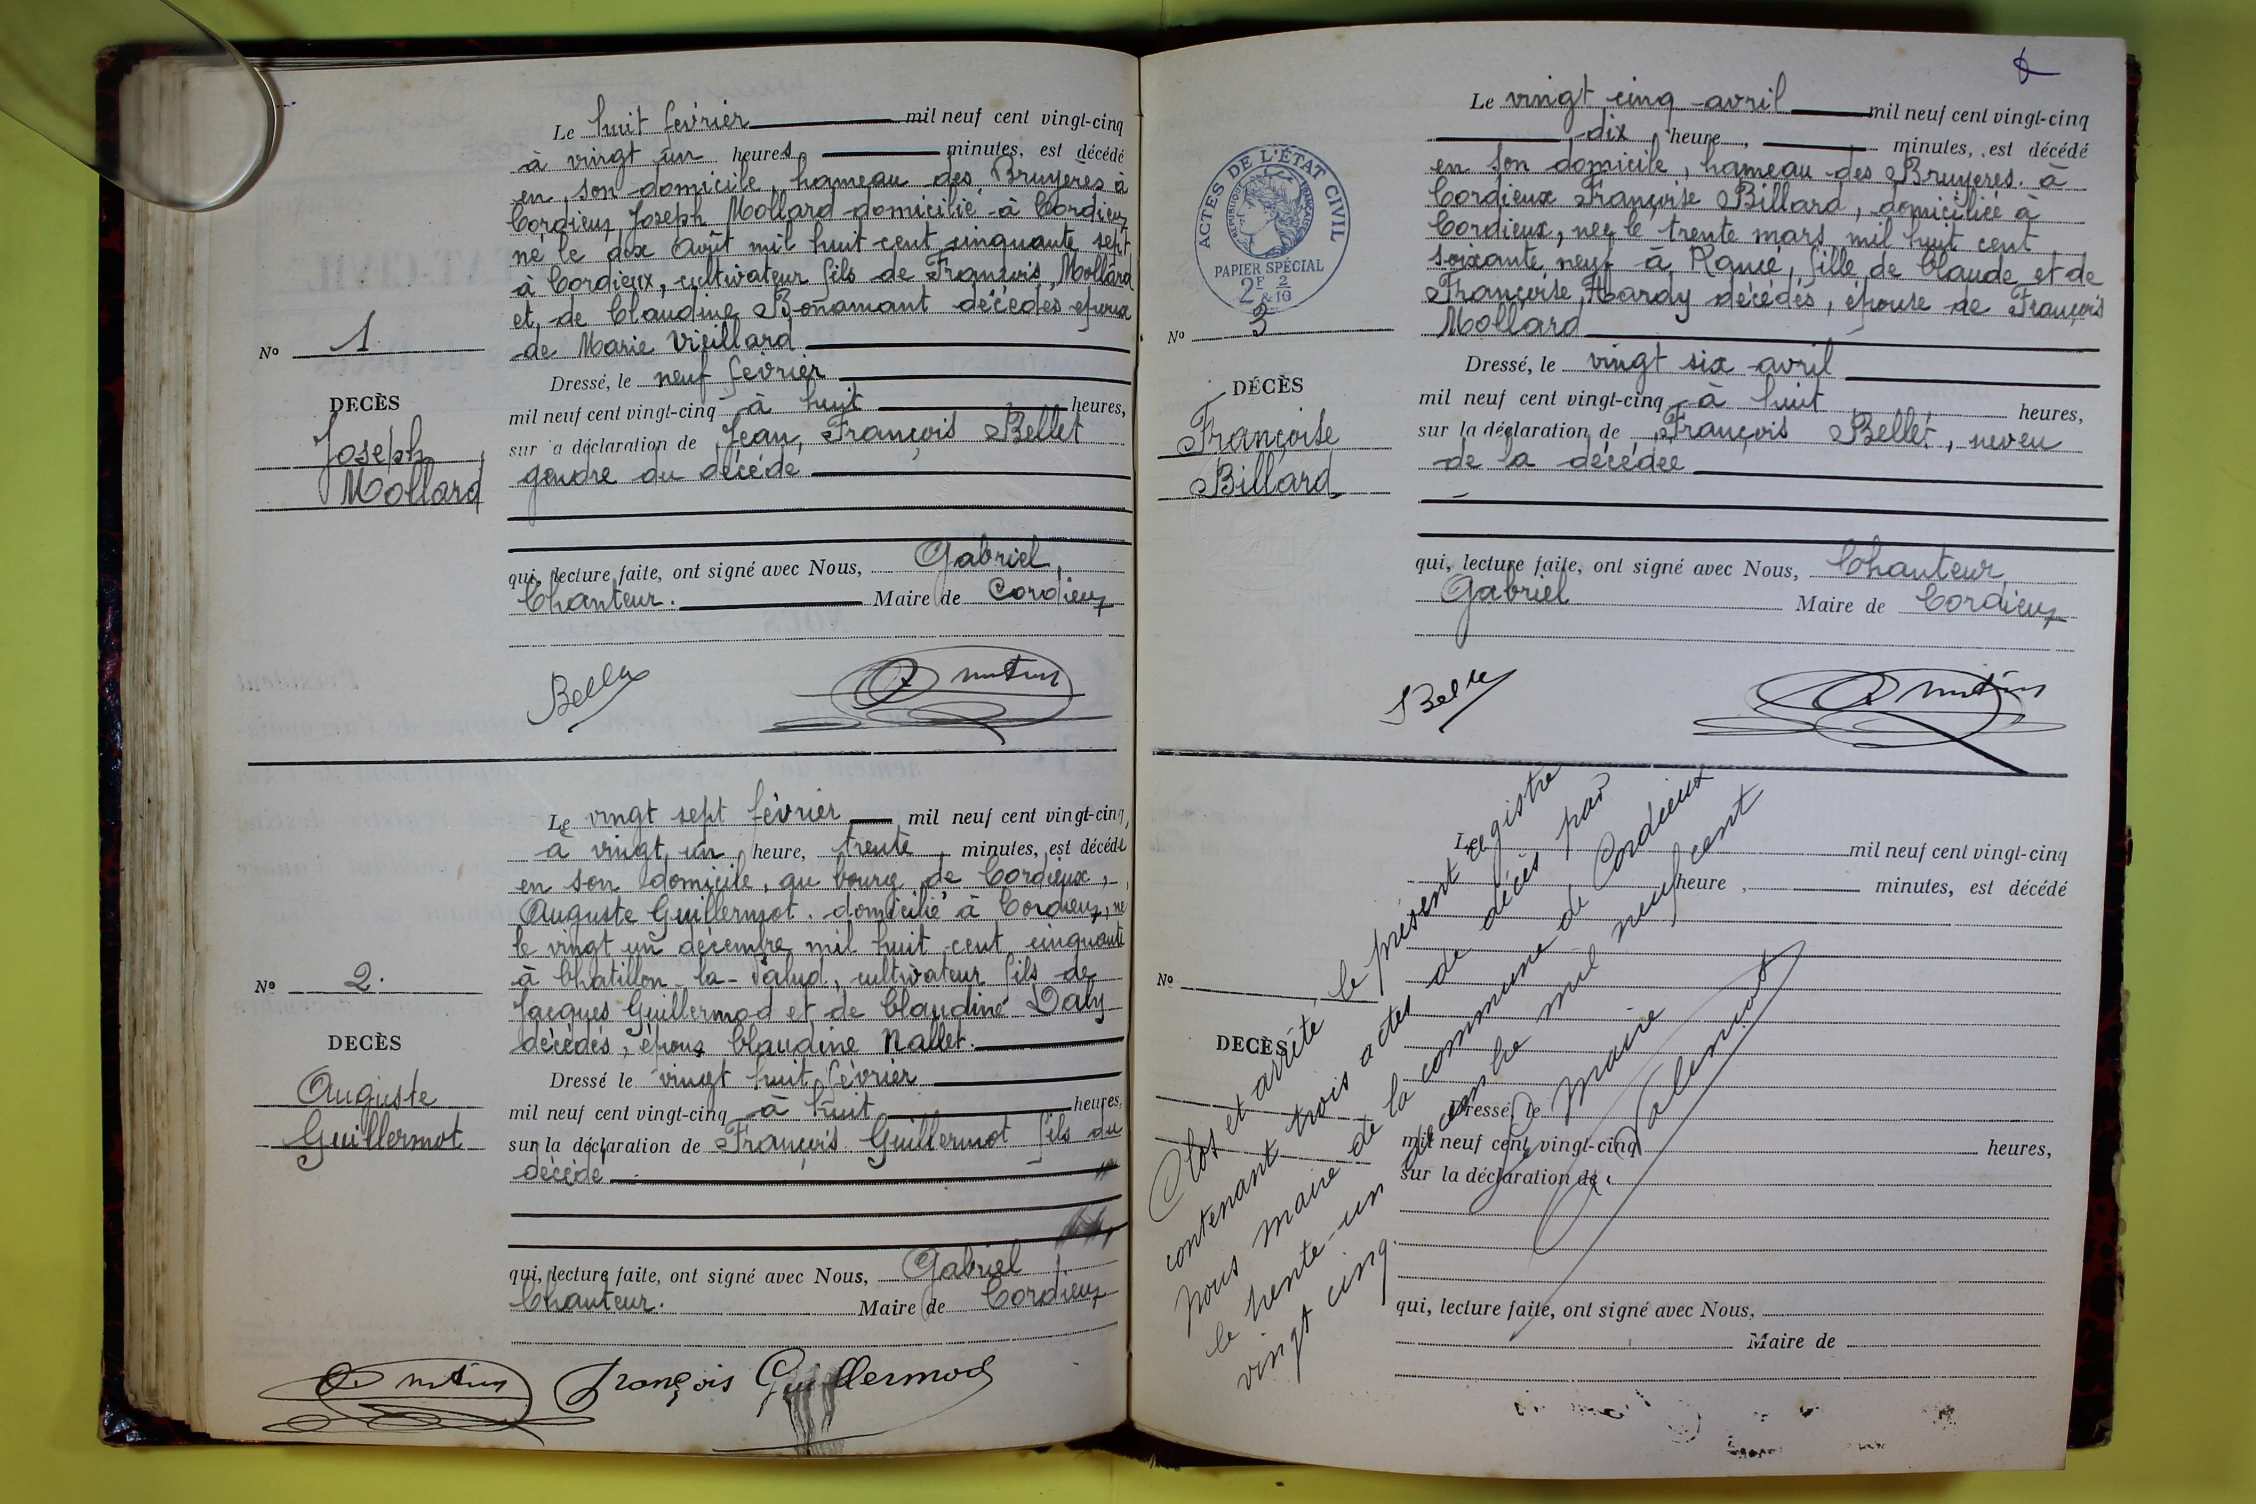 Le huit février mil neuf cent vingt-cinq
à vingt un heures minutes, est décédé
en son domicile, hameau des Bruyères à
Cordieux Joseph Mollard domicilié à Cordieux
né le dix août mil huit cent cinquante sept
à Cordieux, cultivateur fils de François Mollard
et de Claudine Bonamant décédés époux
de Marie Vieillard
No 1
DECÈS
Joseph
Mollard
Dressé, le neuf février
mil neuf cent vingt-cinq à huit heures,
sur a déclaration de Jean, François Bellet
gendre du décédé
qui, lecture faite, ont signé avec Nous, Gabriel,
Chanteur. Maire de Cordieux
Le vingt sept février mil neuf cent vingt-cinq,
à vingt un heure, trente, minutes, est décédé
en son domicile, au bourg de Cordieux,
Auguste Guillermot domicilié à Cordieux, né
le vingt un décembre mil huit cent cinquante
à Chatillon-la-Palud, cultivateur fils de
Jacques Guillermod et de Claudine
décédés, époux Claudine Nallet.
No 2.
DECÈS
Auguste
Guillermot
Dressé le vingt huit février
mil neuf cent vingt-cinq à huit heures,
sur la déclaration de François Guillermot fils du
décédé
qui, lecture faite, ont signé avec Nous, Gabriel
Chanteur. Maire de Cordieux
François Guillermod
ACTES DE L'ÉTAT CIVIL
RÉPUBLIQUE FRANÇAISE
PAPIER SPÉCIAL
2F 2
&10
Le vingt cinq avril mil neuf cent vingt-cinq
dix heure, minutes, est décédé
en son domicile, hameau des Bruyères à
Cordieux Françoise Billard, domiciliée à
Cordieux, née le trente mars mil huit cent
soixante neuf à Rancé, fille de Claude et de
Françoise Hardy décédés, épouse de François
Mollard
No 3
DÉCÈS
Françoise
Billard
Dressé, le vingt six avril
mil neuf cent vingt-cinq à huit heures,
sur la déclaration de François Bellet, neveu
de la décédée
qui, lecture faite, ont signé avec Nous, Chanteur
Gabriel Maire de Cordieux
Le mil neuf cent vingt-cinq
heure, minutes, est décédé
No
DECÈS
Dressé, le
mil neuf cent vingt-cinq heures,
sur la déclaration de
qui, lecture faite, ont signé avec Nous,
Maire de
Clos et arrêté le présent registre
contenant trois actes de décès par
nous maire de la commune de Cordieux
le trente-un décembre mil neuf cent
vingt cinq.
Le Maire